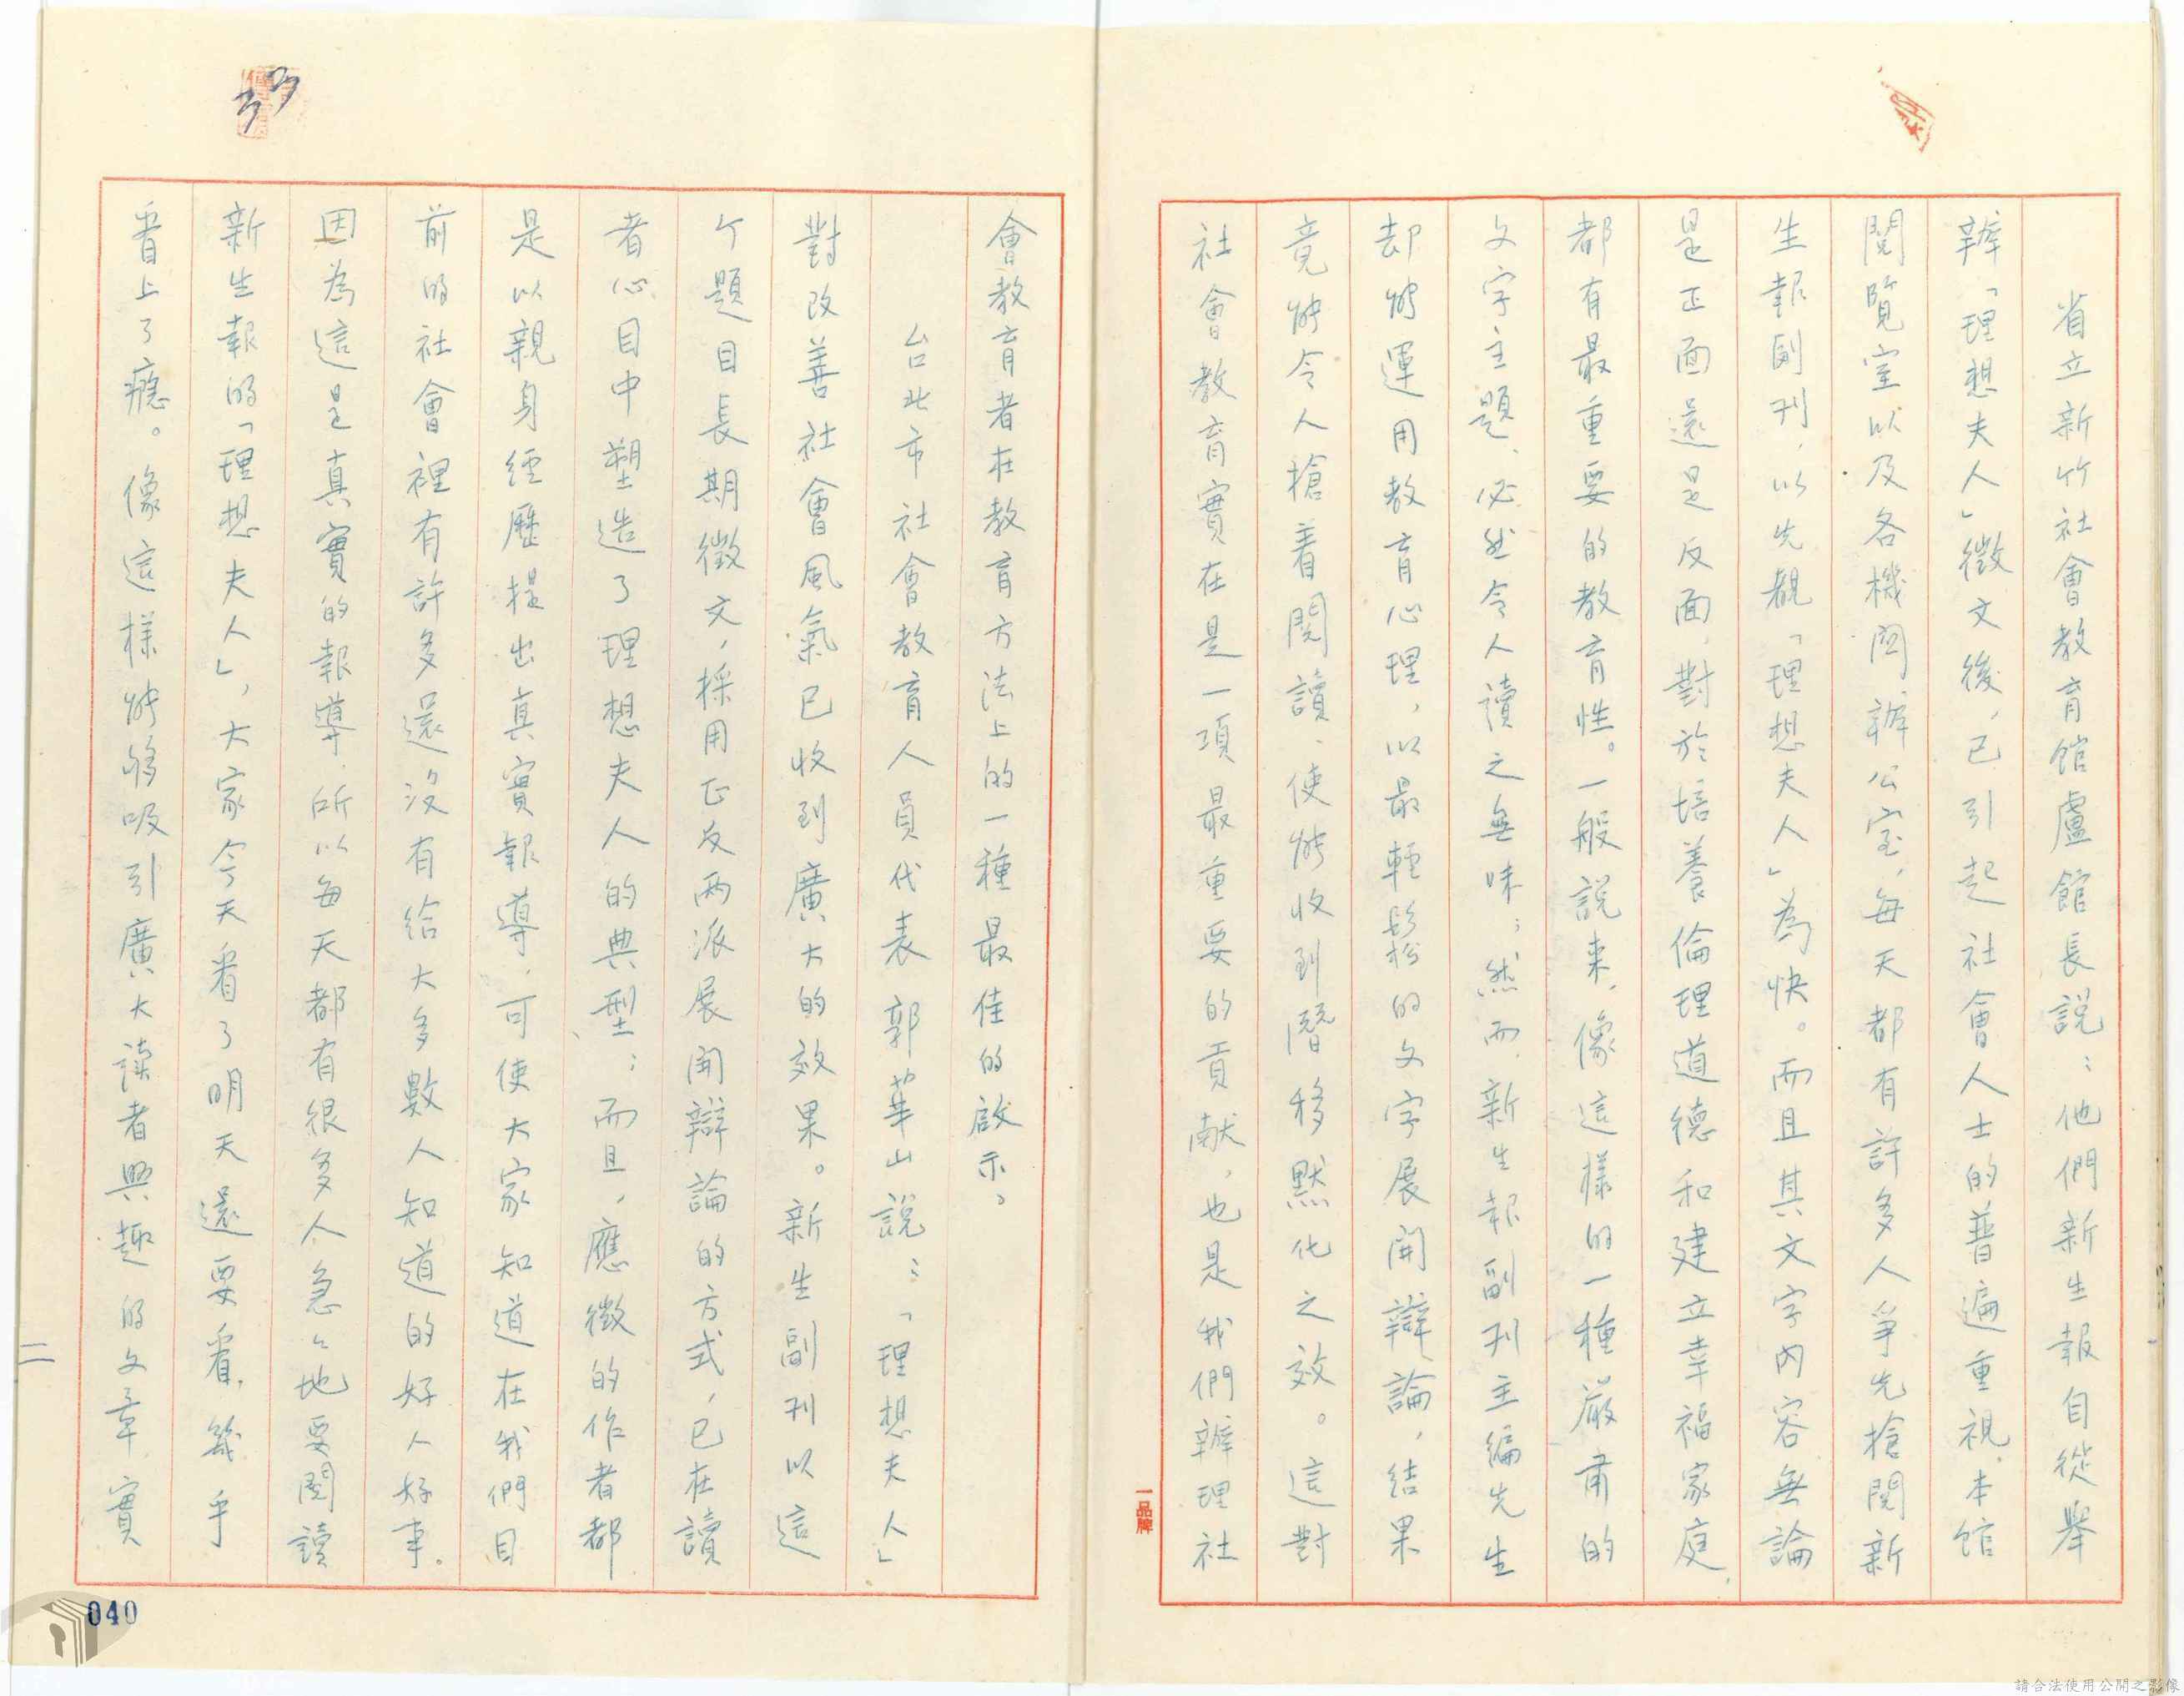 省立新竹社會教育館盧館長説：他們新生報自從舉
辦「理想夫人」徵文後，已引起社會人士的普遍重視，本館
閱覧室以及各機関辦公室，每天都有許多人爭先搶閱新
生報副刊，以先覩「理想夫人」為快。而且其文字内容無論
是正面還是反面，對於培養倫理道德和建立幸福家庭，
都有最重要的教育性。一般説來，像這樣的一種嚴肅的
文字主題、必然令人讀之無味；然而，新生報副刊主編先生
却能運用教育心理，以最輕鬆的文字展開辯論，結果
竟能令人搶着閱讀、使能收到潛移默化之效。這對
社會教育實在是一項最重要的貢献，也是我們辦理社
會教育者在教育方法上的一種最佳的啟示。
台北市社會教育人員代表郭華山説：「理想夫人」
對改善社會風氣已收到廣大的效果。新生副刊以這
个題目長期徵文，採用正反兩派展開辯論的方式，已在讀
者心目中塑造了理想夫人的典型；而且，應徵的作者都
是以親身經歷提出真實報導，可使大家知道在我們目
前的社會裡有許多還沒有給大多數人知道的好人好事。
因為這是真實的報導，所以每天都有很多人急々地要閱讀
新生報的「理想夫人」，大家今天看了明天還要看，幾乎
看上了癮。像這樣能够吸引廣大读者興趣的文章，實
二
39
040
一品牌
請合法使用公開之影像